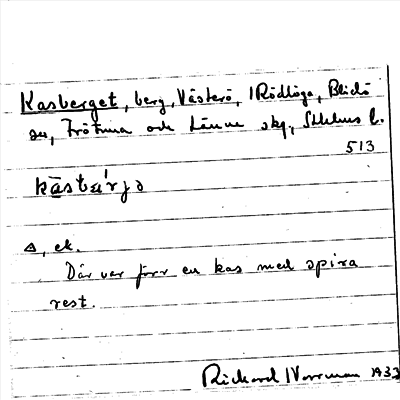 Kasberget, berg, Västerö, Rödlöga, Blidö
sn, Frötuna och Länna skg., Sthlms l.
513
△, ek.
Där var förr en kas med spira
rest.
Rickard Norrman 1933